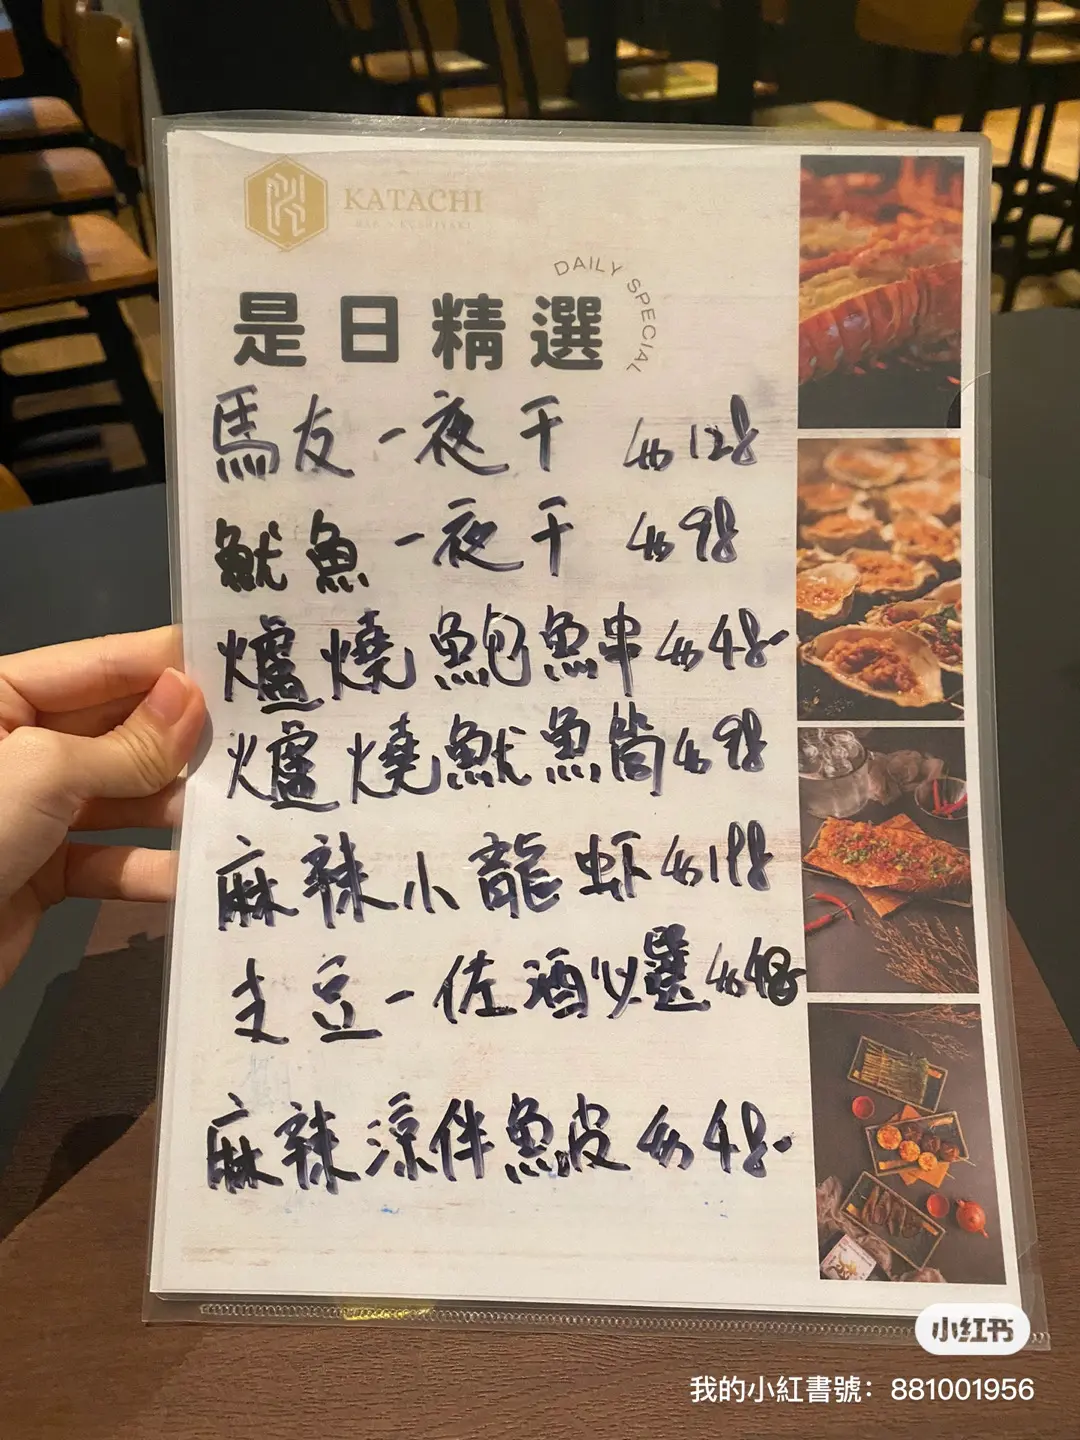 KATACHI
BAR · KUSHIYAKI
DAILY SPECIAL
是日精選
馬友一夜干 $128
魷魚一夜干 $98
爐燒鮑魚串 $48
爐燒魷魚筒 $98
麻辣小龍虾 $198
支豆-佐酒必選 $48
麻辣涼伴魚皮 $48
小红书
我的小紅書號：881001956